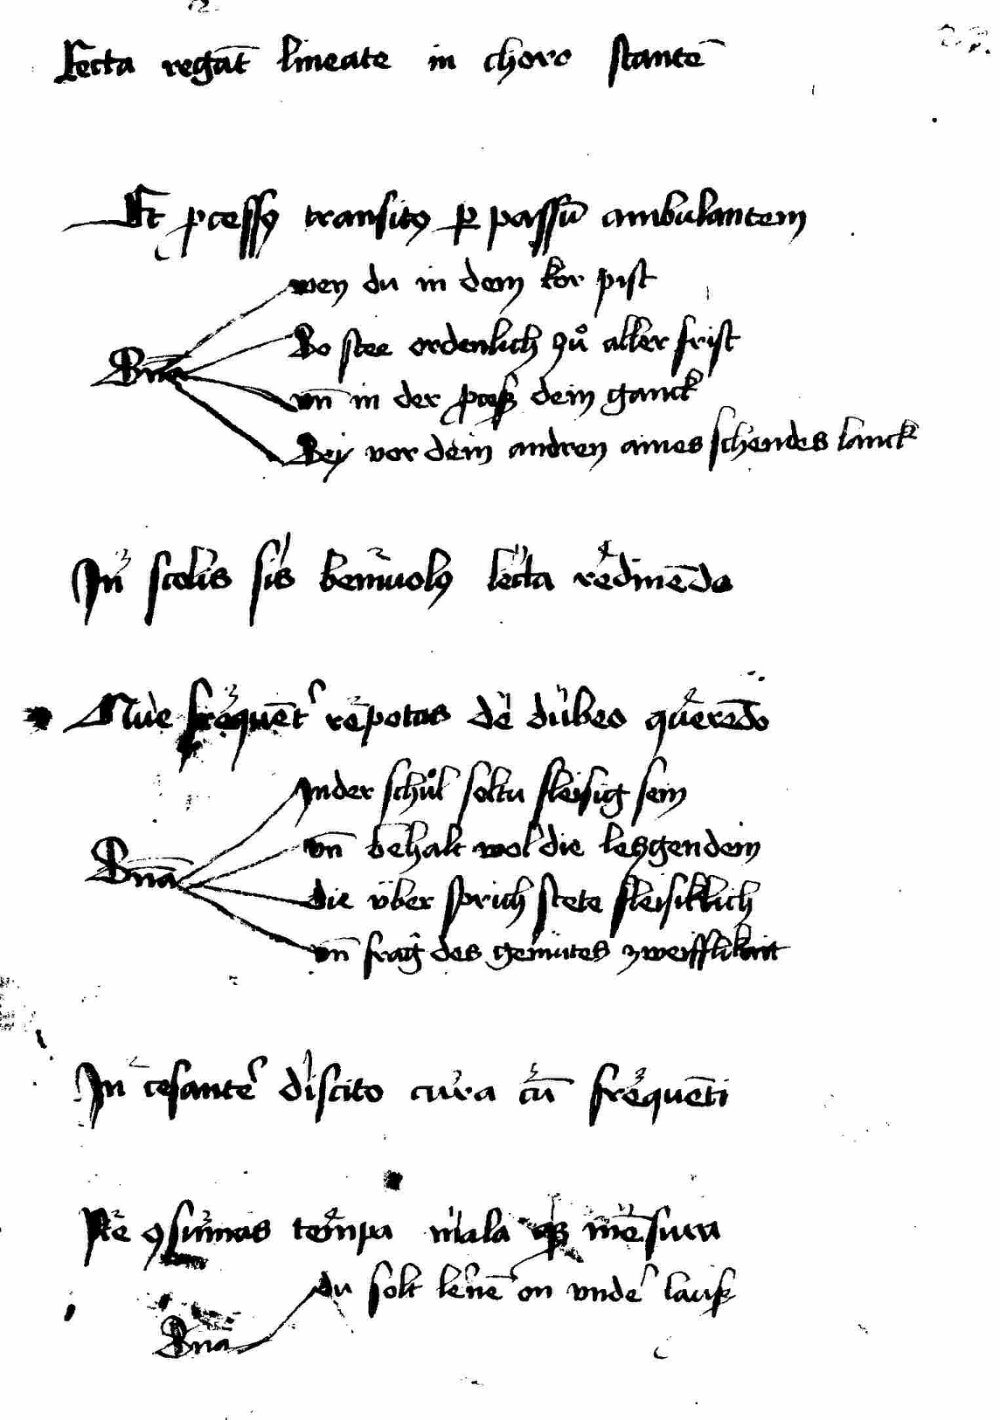 Recta regāt lineate in choro stantē
Et ꝓcessꝰ transitꝰ ꝑ passū ambulantem
wen du in dem kor pist
So stee ordenlich zů aller frist
Sn̄a
vn̄ in der ꝓceß dein ganck
Sey vor dein andren aines schendes lanck
In scolis sis beniuolꝰ lecta redimēdo
Siue frequēt repetas de dubes querēdo
In der schůl soltu fleisig sein
vn̄ behalt wol die lesgen dein
Sn̄a
die über sprich stete fleisiklich
vn̄ frag des gemütes zweifflikait
In cesanter discito cura cū frequēti
Re ꝯsumas tempa mala absqꝫ mēsura
du solt lernē on vnder lauß
Sn̄a